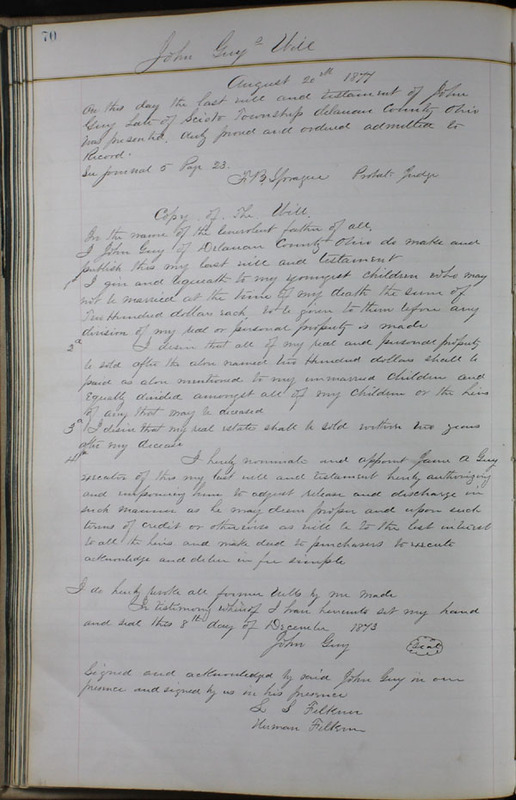 70
John Guy's Will
August 20th 1877
On this day the last will and testament of John
Guy Late of Scioto Township Delaware County Ohio
was presented, duly proved and ordered admitted to
Record.
See journal 5 Page 23.
F. B. Sprague Probate Judge
Copy of The Will.
In the name of the benevolent father of all,
I John Guy of Delaware County Ohio do make and
publish this my last will and testament
1st I give and bequeath to my youngest children who may
not be married at the time of my death the sum of
Two Hundred dollars each to be given to them before any
division of my real or personal property is made
2d I desire that all of my real and personal property
be sold after the above named two Hundred dollars shall be
paid as above mentioned to my unmarried children and
Equally divided amongst all of my children or the heirs
of any that may be deceased
3d I desire that my real estate shall be sold within two years
after my decease
4th I hereby nominate and appoint A Guy
executor of this my last will and testament hereby authorizing
and empowering him to adjust release and discharge in
such manner as he may deem proper and upon such
terms of credit or otherwise as will be to the best interest
to all the heirs and make deed to purchasers to execute
acknowledge and deliver in fee simple
I do hereby revoke all former Wills by me made
In testimony whereof I have hereunto set my hand
and seal this 8th day of December 1873
John Guy (Seal)
Signed and acknowledged by said John Guy in our
presence and signed by us in his presence
S Filkin
Herman Filkin